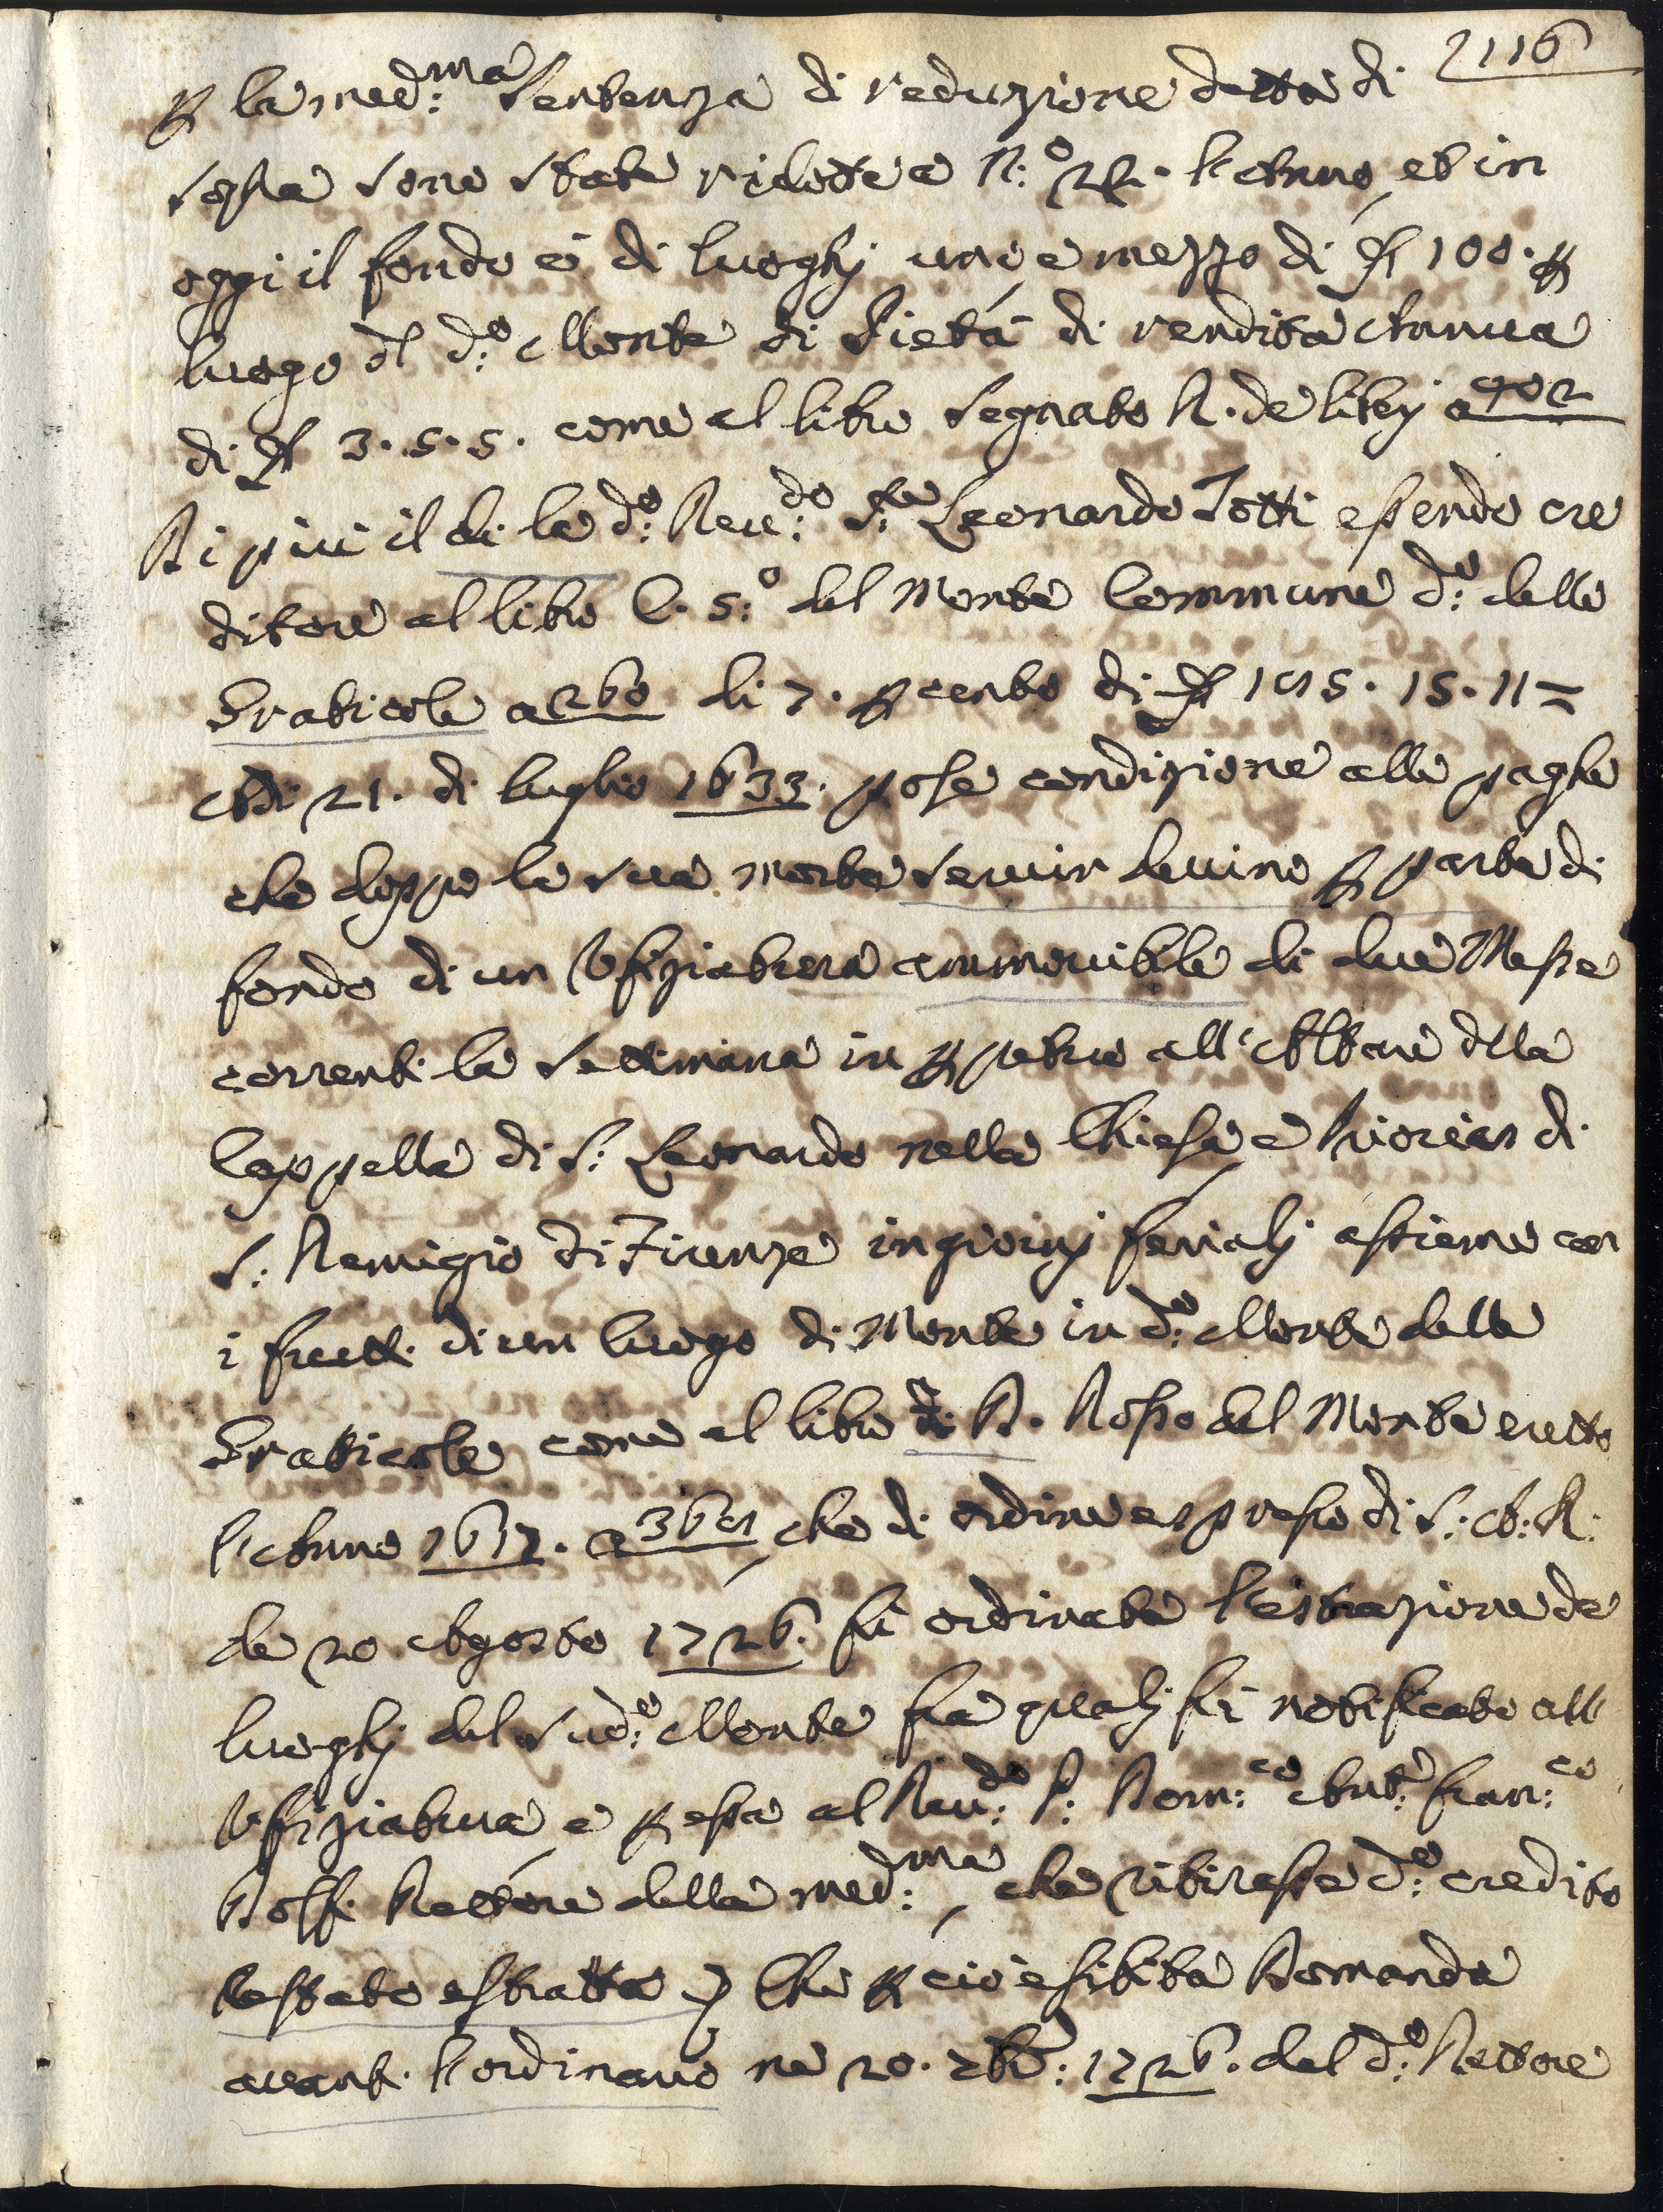 2116
p la med:ma Sentenza di reduzione detta di
sopra sono state ridotte a N:o 22. l'Anno, et in
oggi il fondo è di luoghj uno e mezzo di 100. p
luogo dl d:o Monte di Pietà di rendita Annua
di 3. 5. 5. come al libro Segnato A. de libri a 902
Di più il di là d:o Reu:do S:re Leonardo Totti essendo cre
ditore al libro C. 5:o del Monte Commune d:o delle
Graticole a 260 di 7. p cento di 1915. 15. 11 =
Adi 21. di luglio 1633. pose condizione alle paghe
che doppo la sua morte seruir deuino p parte di
fondo di un Vfiziatura ammouibile di due Messe
correnti la Settimana in ppetuo all'Altare dlla
Cappella di S: Leonardo nella Chiesa e Prioria di
S: Remigio di Firenze in giorni ferialj assieme con
i frutti di un luogo di Monte in d:o Monte delle
Graticole come al libro di D. Rosso del Monte eretto
l'Anno 1617. a 369, che di ordine espresso di S: A: R:
de 20 Agosto 1726. fù ordinata l'estrazione de
luoghj del Sud:o Monte fra qualj fù notificato all
Vfiziatura e p essa al Reu:do P: Dom:co Ant:o Fran:co
Rettore della med:ma, che ritirasse d:o credito
restato estratto Che p ciò esibita Domanda
auanti l'ordinario ne 20. 7bre: 1726. dal d:o Rettore